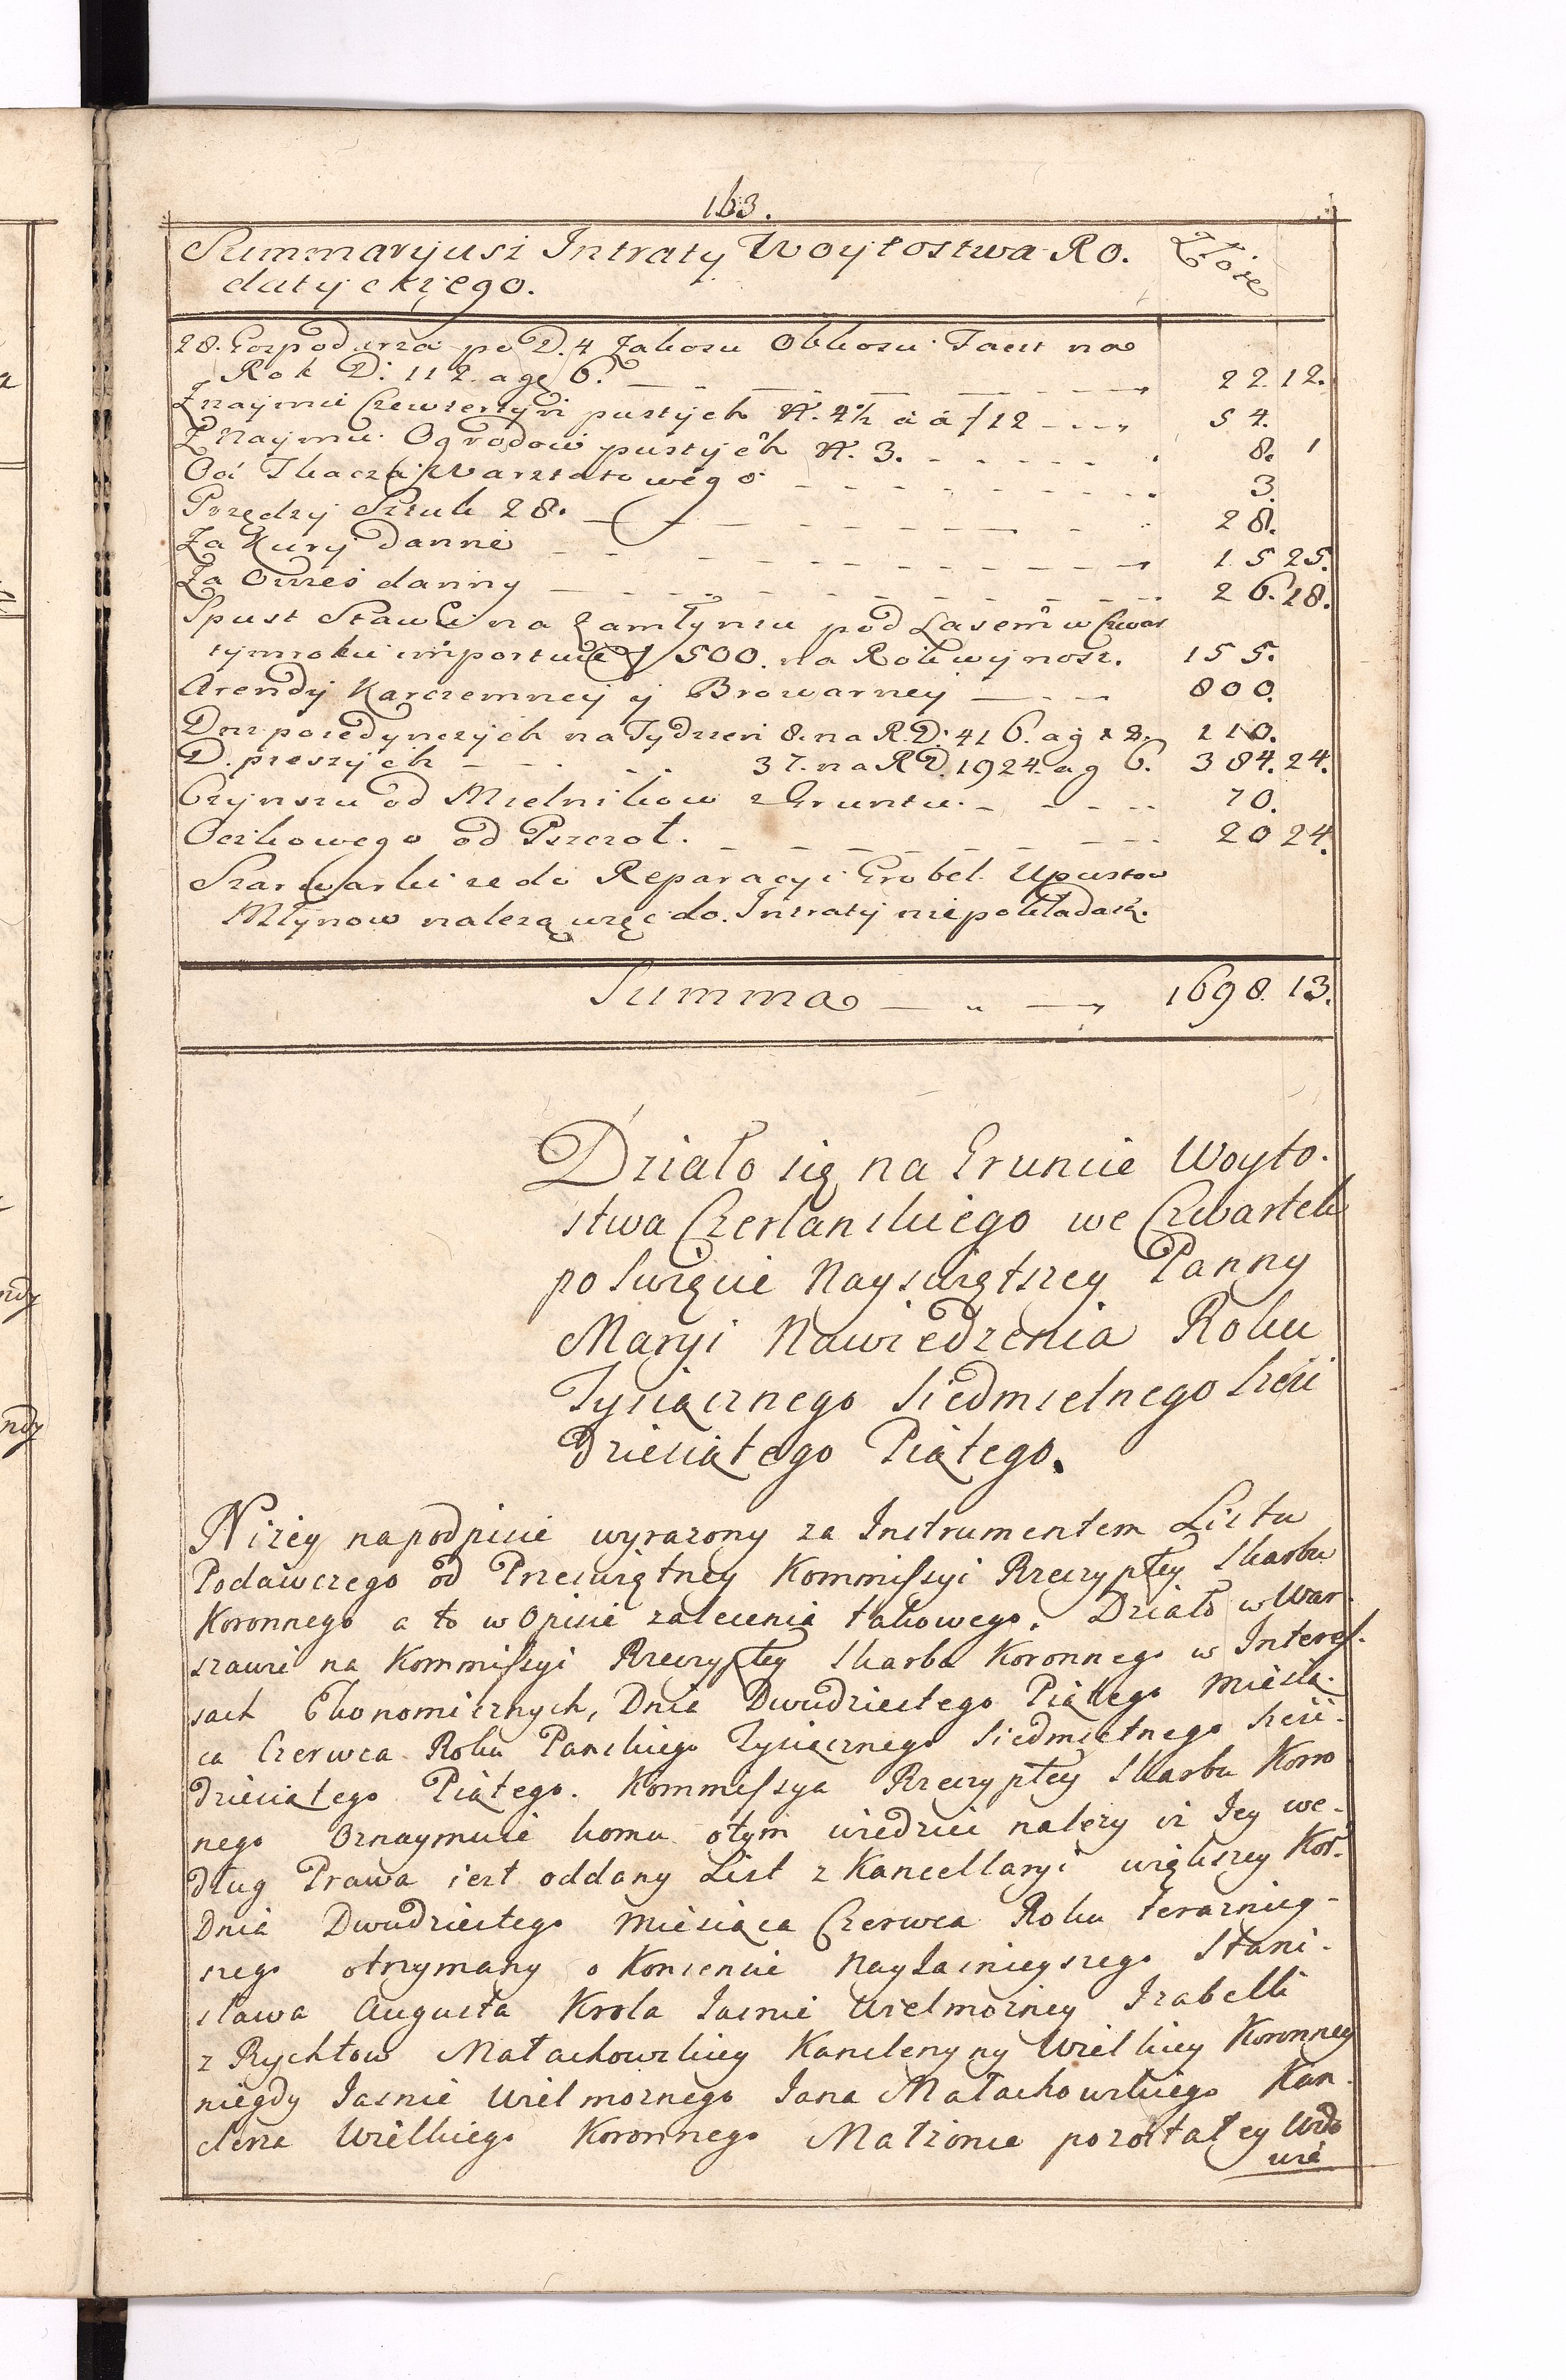 163.
Summaryusz Intraty Woytostwa Ro. Złote
datyckiego.
28. Gospodarza po D. 4 Zakosu Obkosu Facit na
Rok D: 112. a gę 6. 22 12.
Z naymu Czewsertyń pustych N. 4½ à á f 12 54.
Z Naymu Ogrodow pustych N. 3. 8. 1
Od Tkacza Warsztatowego 3.
Przędzy Sztuk 28. 28.
Za Kury danne 15 25.
Za Owies danny 26. 28.
Spust Stawu na Zamłynsu pod Lasem w Czwar
tym roku importuie f 500. na Rok wynosz. 155.
Arendy Karczemney y Browarney 800.
Dni poiedynczych na Tydzień 8. na R. D: 416. a g 12. 110.
D. pieszych 37. na R D. 1924. a g 6. 384. 24.
Czynszu od Mielnikow z Gruntu. 70.
Oczkowego od Pszczoł. 20 24.
Szarwarki ze do Reparacyi Grobel. Upustow
Młynow nalezą więc do. Intraty nie pokładaią.
Summa 1698. 13.
Działo się na Gruncie Woyto.
stwa Czerlanskiego we Czwartek
po Swięcie Nayswiętszey Panny
Maryi Nawiedzenia Roku
Tysiącznego Siedmsetnego Sześć
Dziesiątego Piątego.
Niżey na podpisie wyrazony za Instrumentem Listu
Podawczego od Przeswiętney Kommissyi Rzeczypltey Skarbu
Koronnego a to w Opisie zalecenia takowego. Działo w War-
szawie na Kommissyi Rzeczypltey Skarbu Koronnego w Interes-
sach Ekonomicznych, Dnia Dwudziestego Piątego Miesią-
ca Czerwca Roku Panskiego Tysiącznego Siedmsetnego Sześć-
dziesiątego Piątego. Kommissya Rzeczypltey Skarbu Koro
nego Oznaymuie komu otym wiedzieć nalezy iż Jey we-
dług Prawa iest oddany List z Kancellaryi większey Kor.
Dnia Dwudziestego Miesiąca Czerwca Roku terazniey-
szego otrzymany o Konsensie Nayjasnieyszego Stani-
sława Augusta Krola Jasnie Wielmozney Izabelli
z Rychtow Małachowskiey Kanclerzyny Wielkiey Koronney
niegdy Jasnie Wielmoznego Jana Małachowskiego Kan-
clerza Wielkiego Koronnego Małzonce pozostałey Wdo
wie